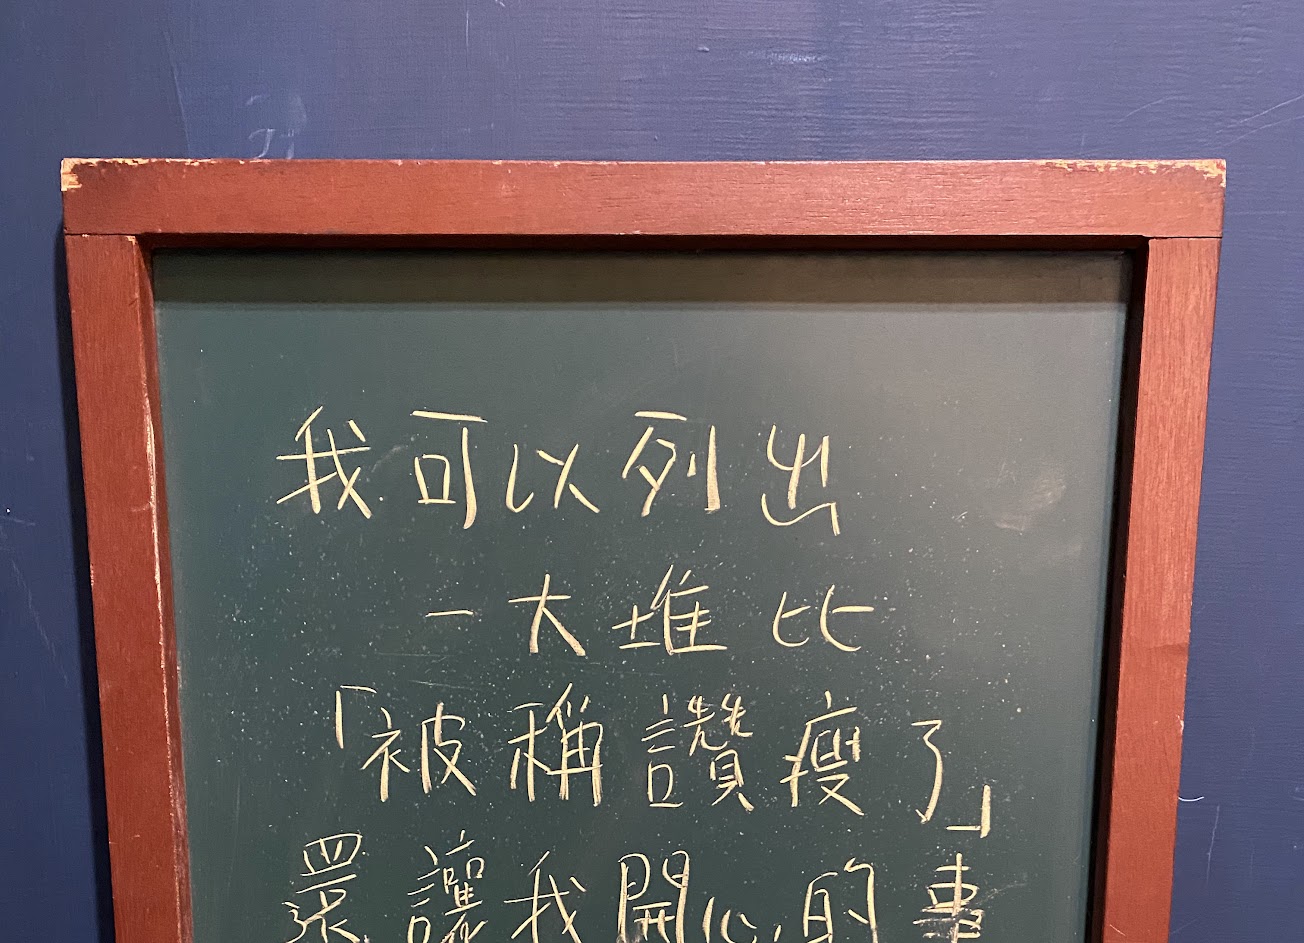 我可以列出
一大堆比
「被稱讚瘦了」
還讓我開心的事